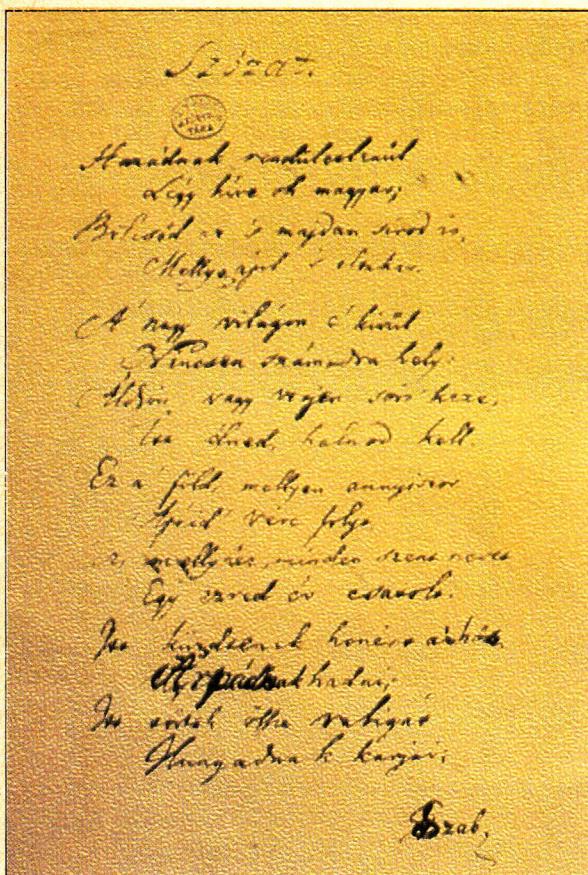 Szózat.
Hazádnak rendületlenűl
Légy híve oh magyar;
Bölcsőd ez 's majdan sírod is,
Melly ápol 's eltakar.
A' nagy világon e' kivűl
Nincsen számodra hely;
Áldjon vagy verjen sors keze,
Itt élned, halnod kell.
Ez a' föld, mellyen annyiszor
Apáid' vére folyt
Ez, mellyhez minden szent nevet
Egy ezred év csatolt.
Itt küzdtenek honért a' hős
Árpádnak hadai;
Itt törtek össze rabigát
Hunyadnak karjai;
Szab,